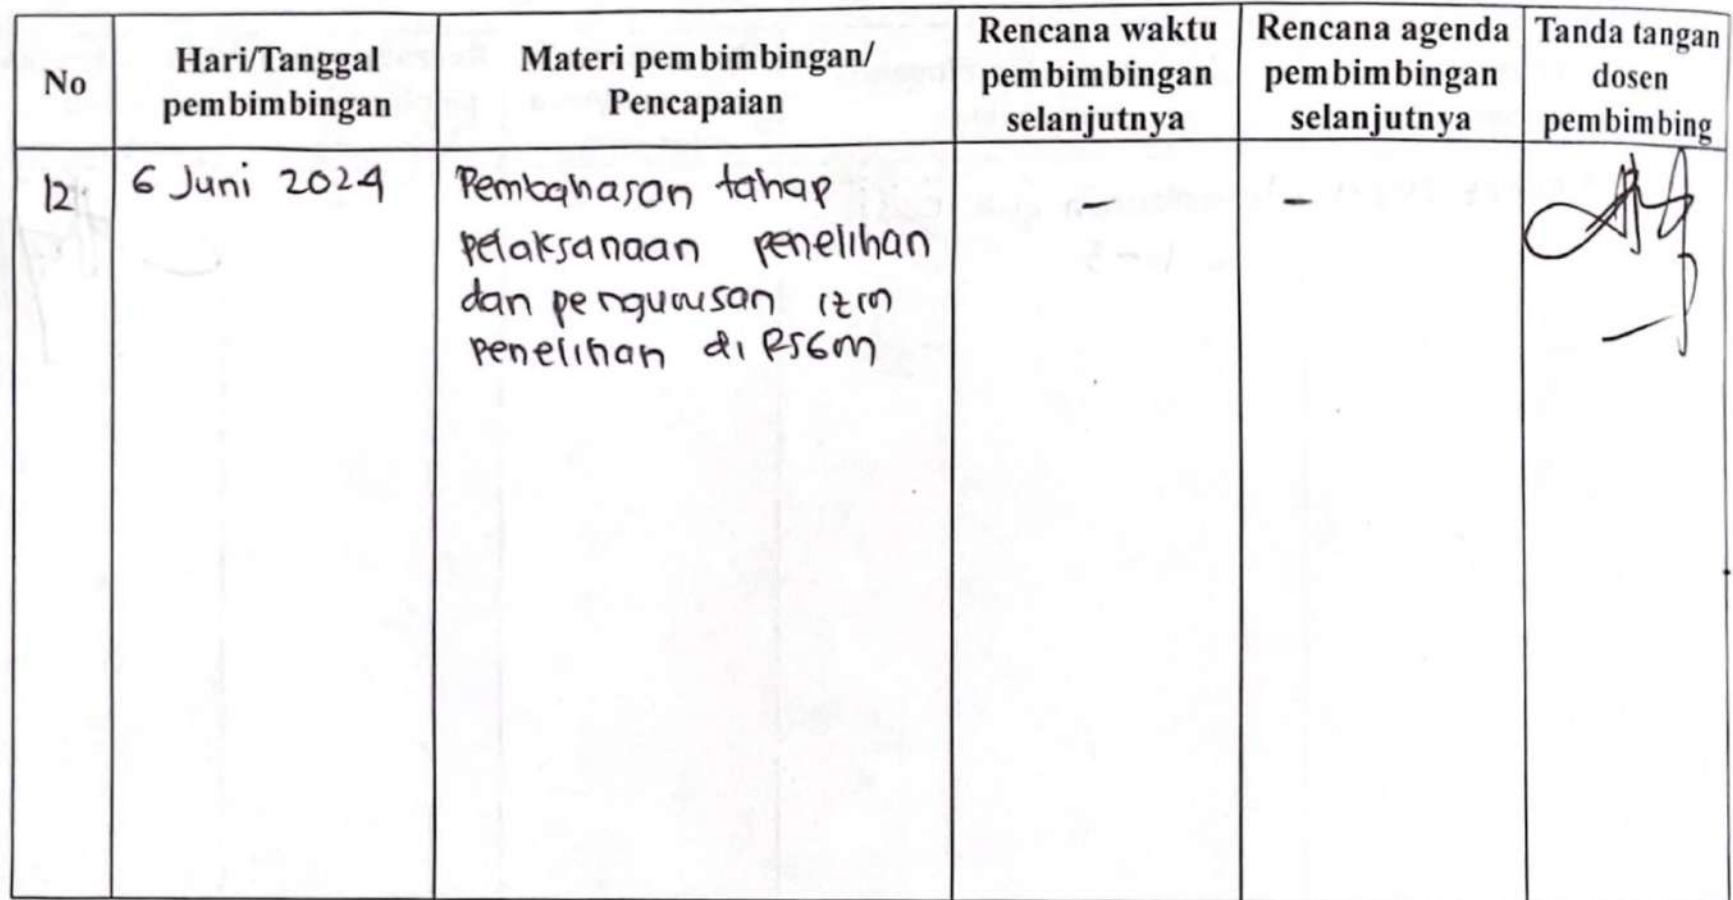 No
Hari/Tanggal
pembimbingan
Materi pembimbingan/
Pencapaian
Rencana waktu
pembimbingan
selanjutnya
Rencana agenda
pembimbingan
selanjutnya
Tanda tangan
dosen
pembimbing
12
6 Juni 2024
Pembahasan tahap
pelaksanaan penelitian
dan pengurusan izin
penelitian di RSGM
-
-